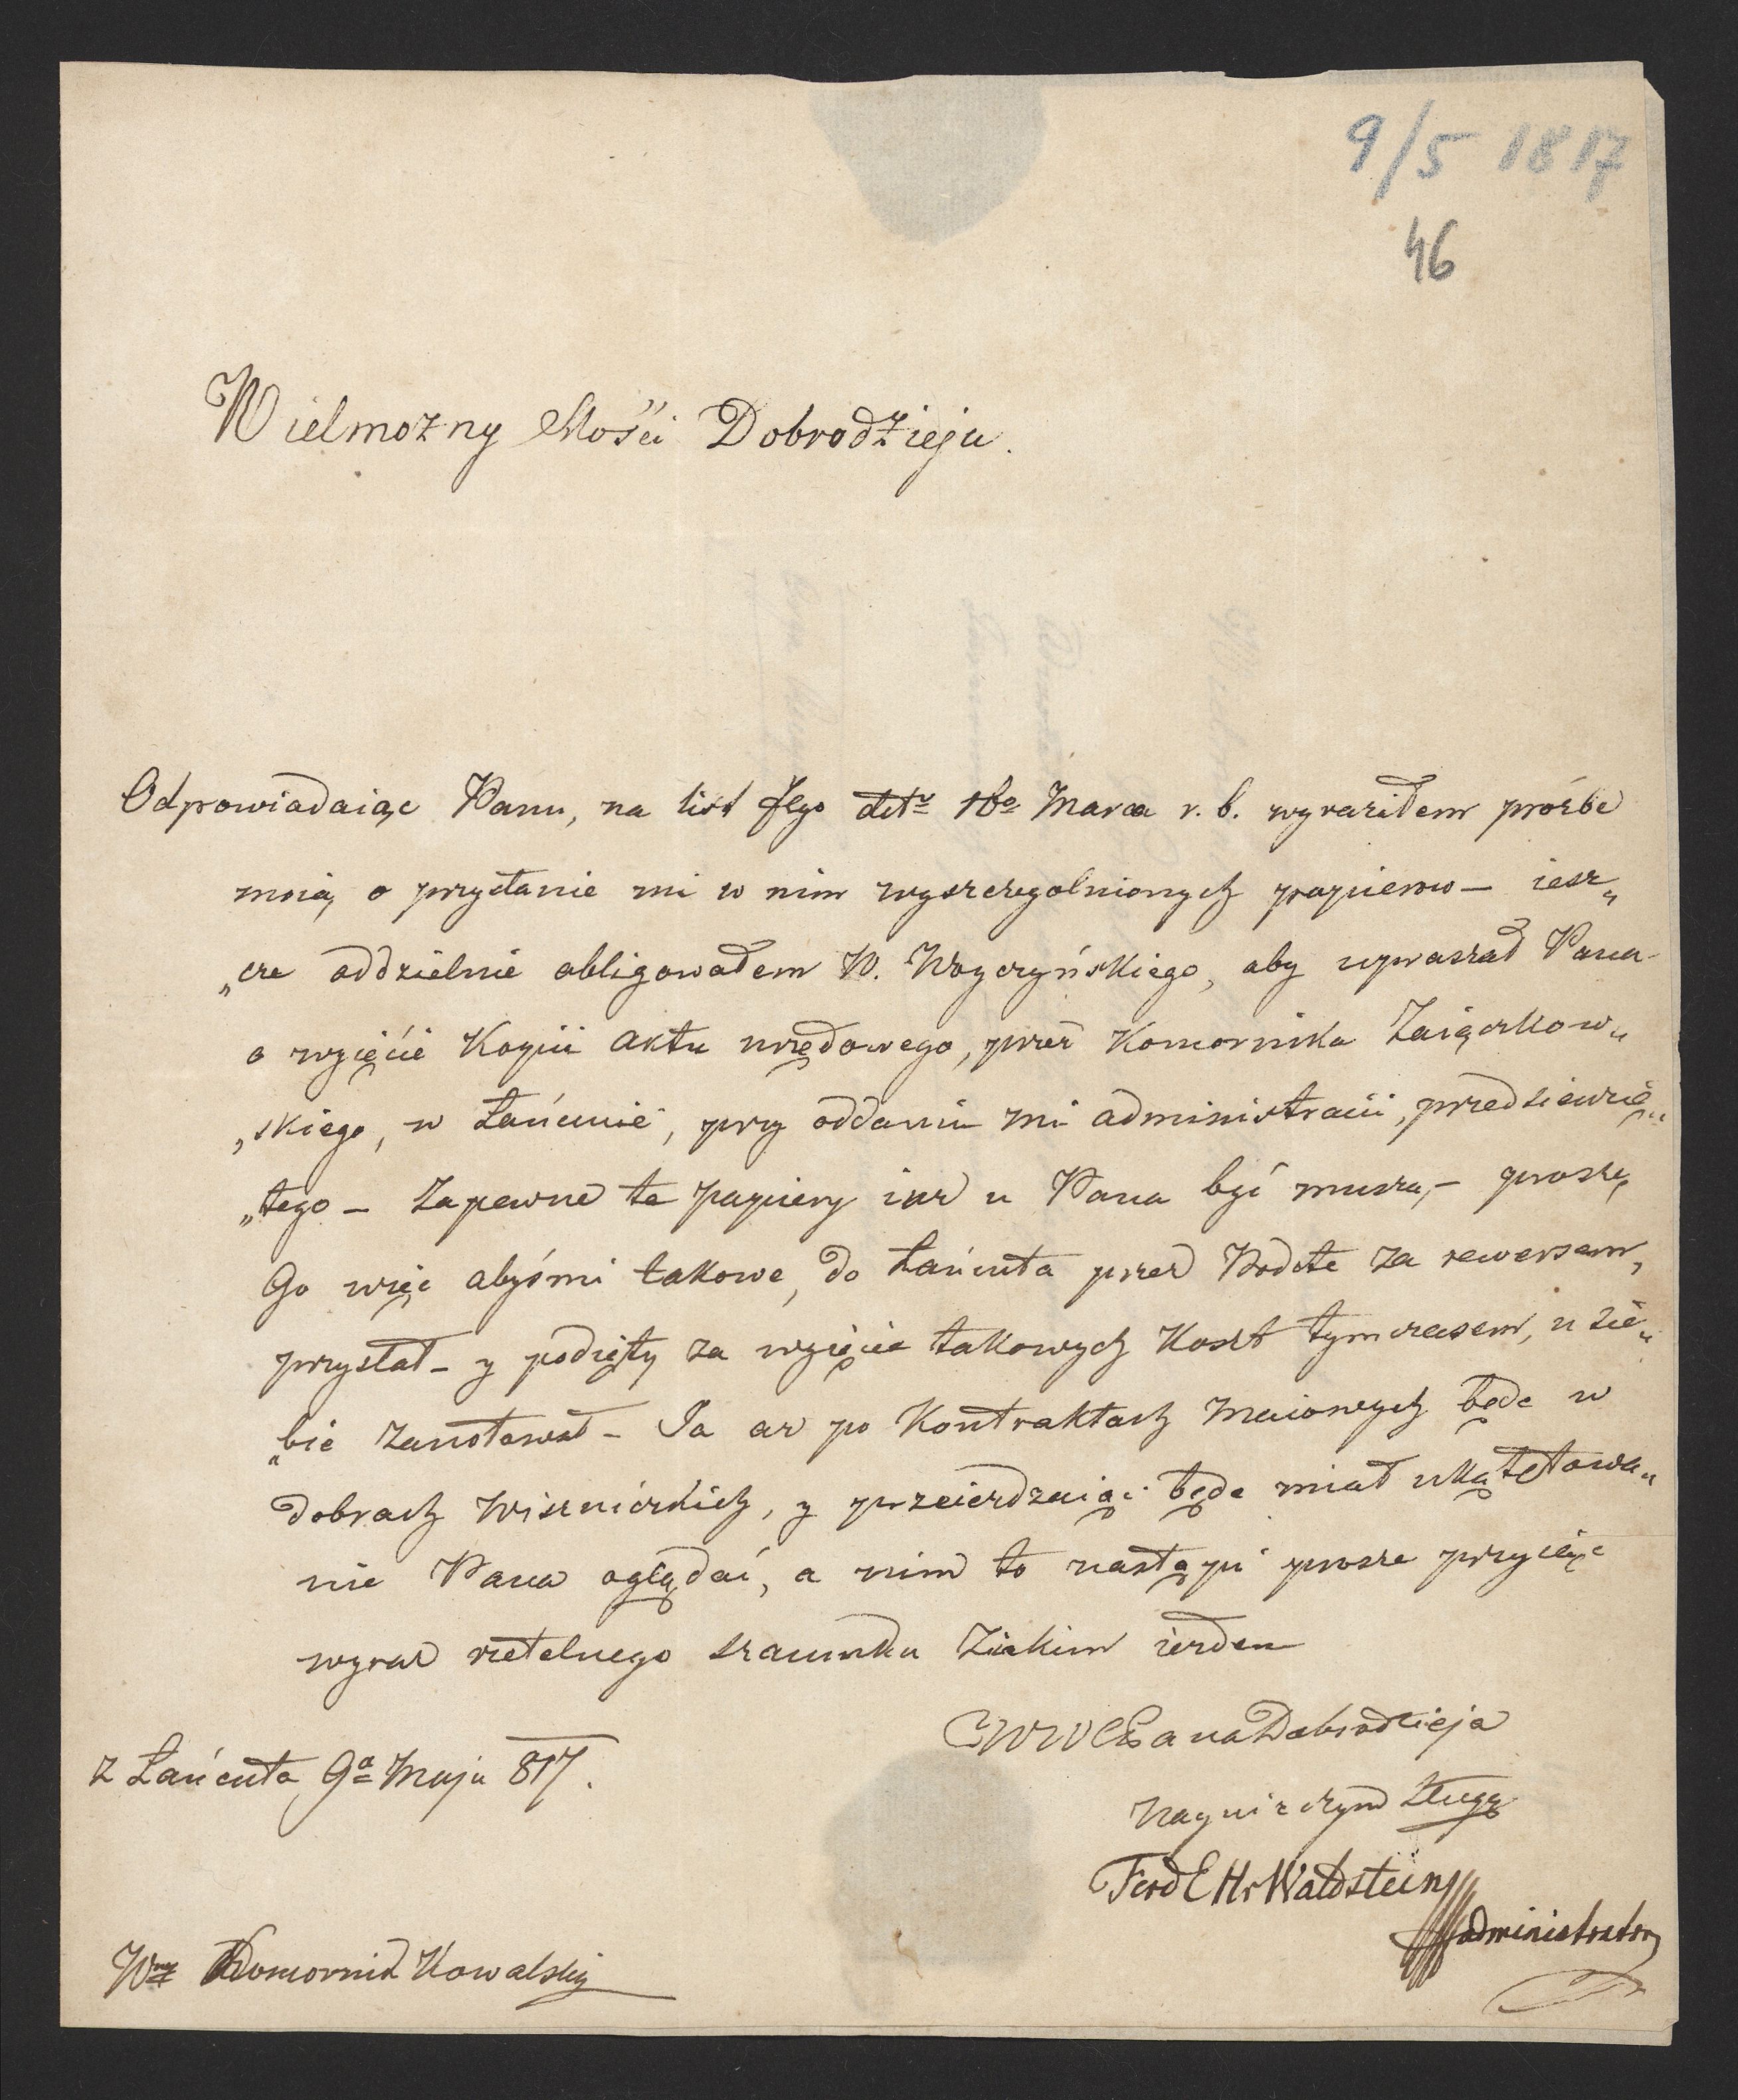 9/5 1817
46
Wielmożny Mości Dobrodzieju.
Odpowiadaiąc Panu, na list Jego 16a Marca r. b. wyraziłem prożbe
moią o przysłanie mi w nim wyszczegolnionych papierow — iesz„
„cze oddzielnie obligowałem W. Woyczyńskiego, aby upraszał Pana
o wzięcie Kopii aktu urzędowego, przez Komornika Zaiączkow„
„skiego, w Łańcucie, przy oddaniu mi administracii, przedsiewzię„
„tego — Zapewne te papiery iuz u Pana być muszą, — proszę
Go więc abyś mi takowe, do Łańcuta przez Podcte za rewersem,
przysłał — y podięty za wzięcie takowych Koszt tymczasem, u sie„
„bie zanotował — Ja az po Kontraktach Maiowych będe w
dobrach Wisznickich, y przeieżdzaiąc będe miał ukątętowa„
nie Pana oglądać, a nim to nastąpi prosze przyiąc
wyraz rzetelnego szacunku z iakim iezdem
WWC Pana Dobrodzieja
Nayniszczym Sługą
Ferd E Hr Waldstein
administrator
z Łańcuta 9a Maja 817.
Wny Komornik Kowalski